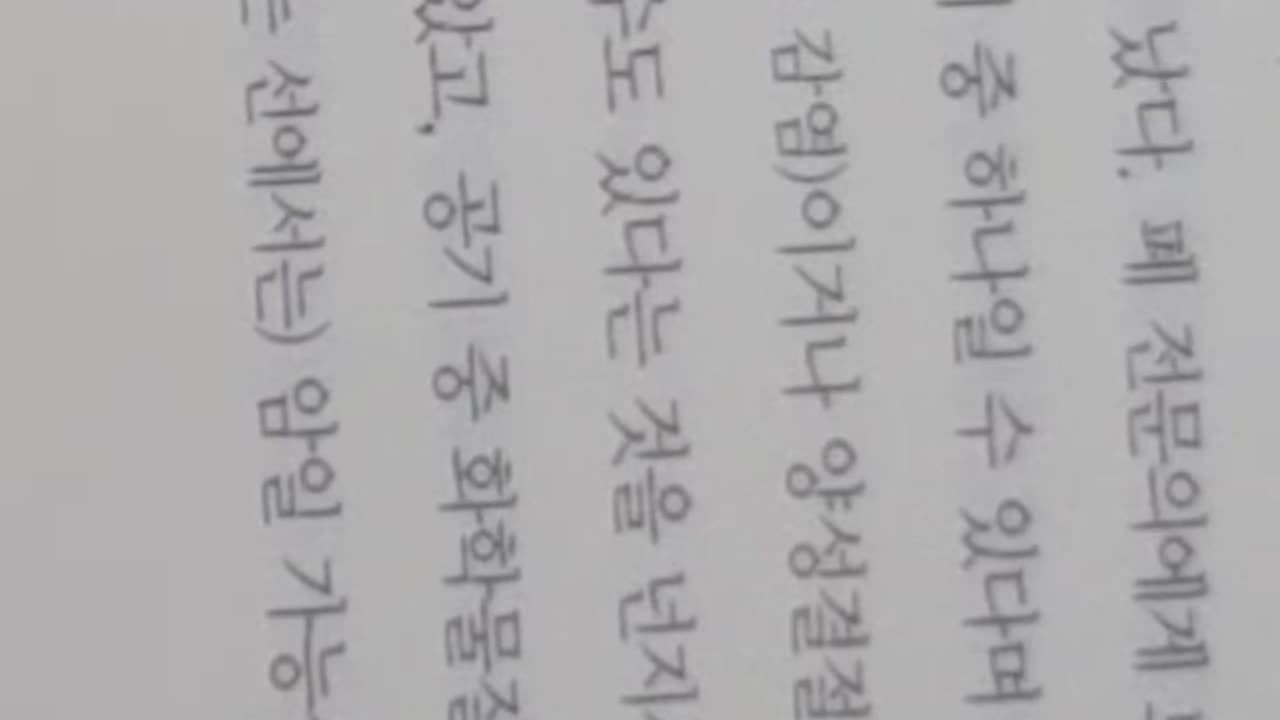 났다. 폐 전문의에게
중 하나일 수 있다며
감염)이거나 양성결절
수도 있다는 것을 넌지
공기 중 화학물질
선에서는) 암일 가능